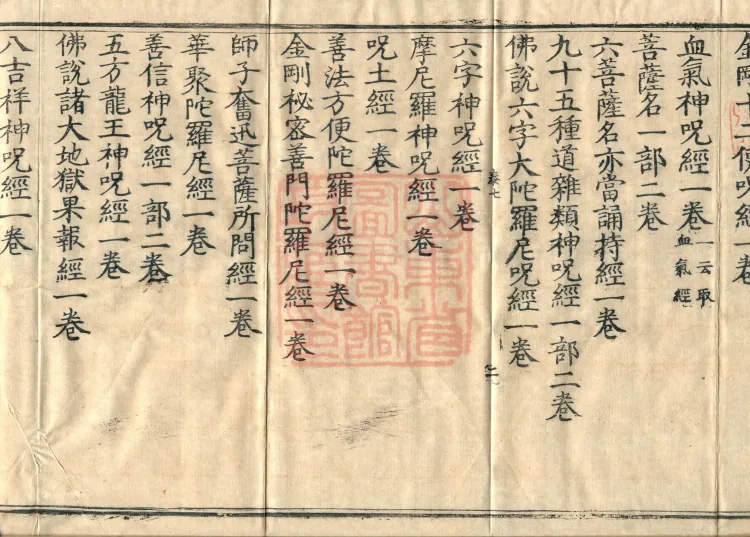 金剛十二佛呪經一卷
血氣神呪經一卷一云取血氣經
菩薩名一部二卷
六菩薩名亦當誦持經一卷
九十五種道雜類神呪經一部二卷
佛說六字大陀羅尼呪經一卷
六字神呪經一卷
摩尼羅神呪經一卷
呪土經一卷
善法方便陀羅尼經一卷
金剛秘密善門陀羅尼經一卷
師子奮迅菩薩所問經一卷
華聚陀羅尼經一卷
善信神呪經一部二卷
五方龍王神呪經一卷
佛說諸大地獄果報經一卷
八吉祥神呪經一卷